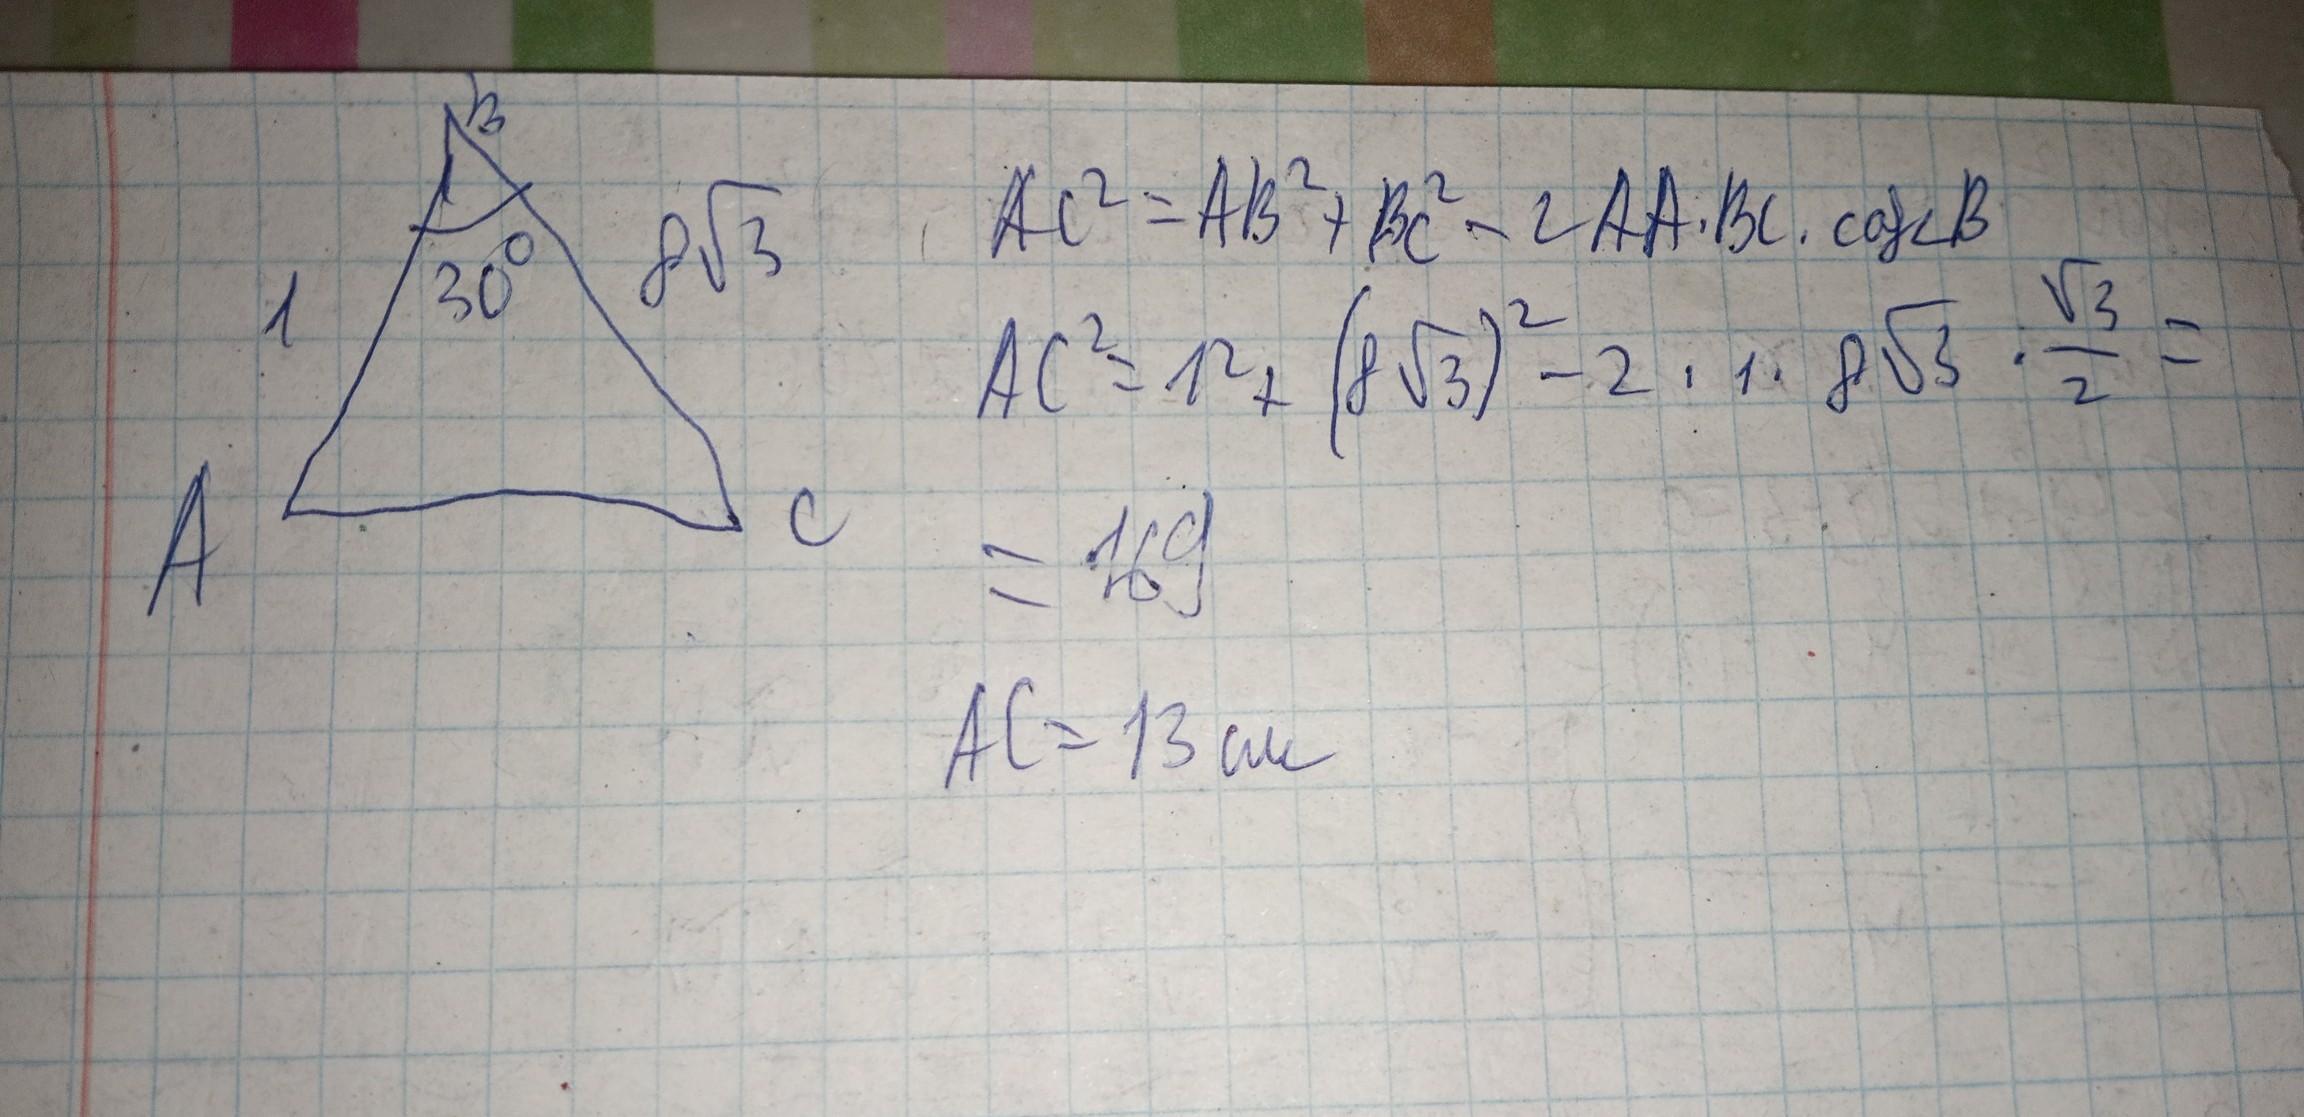 B
30°
8√3
1
A
C
AC² = AB² + BC² - 2AA·BC·cos∠B
AC² = 1² + (8√3)² - 2 · 1 · 8√3 · √3/2 =
= 169
AC = 13 см